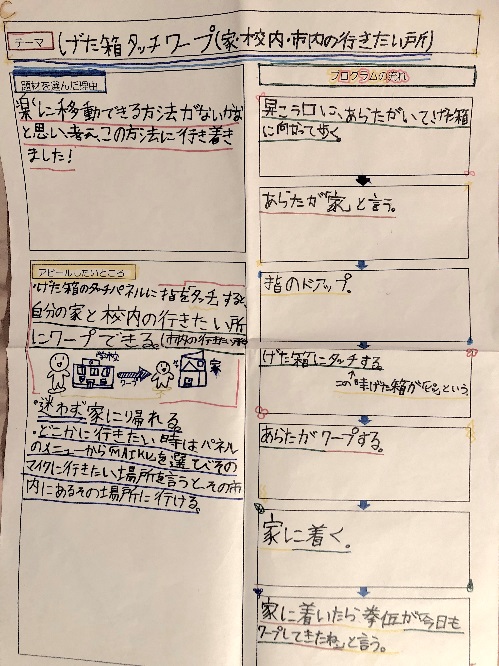 テーマ
げた箱タッチワープ(家・校内・市内の行きたい所)
題材を選んだ理由
楽に移動できる方法がないかな
と思い、考え、この方法に行き着き
ました!
アピールしたいところ
・げた箱のタッチパネルに指を「タッチ」すると、
自分の家と校内の行きたい所
にワープできる。(市内の行きたい所
学校
ワープ
家
・迷わず家に帰れる。
・どこかに行きたい時はパネル
のメニューからMAIKUを選びその
マイクに行きたい場所を言うと、その市
内にあるその場所に行ける。
プログラムの流れ
昇こう口に、あらたがいてげた箱
に向かって歩く。
あらたが「家」と言う。
指のドアップ。
げた箱にタッチする。
この時げた箱が「ピッ」という。
あらたがワープする。
家に着く。
家に着いたら、拳伍が「今日も
ワープしてきたね」と言う。